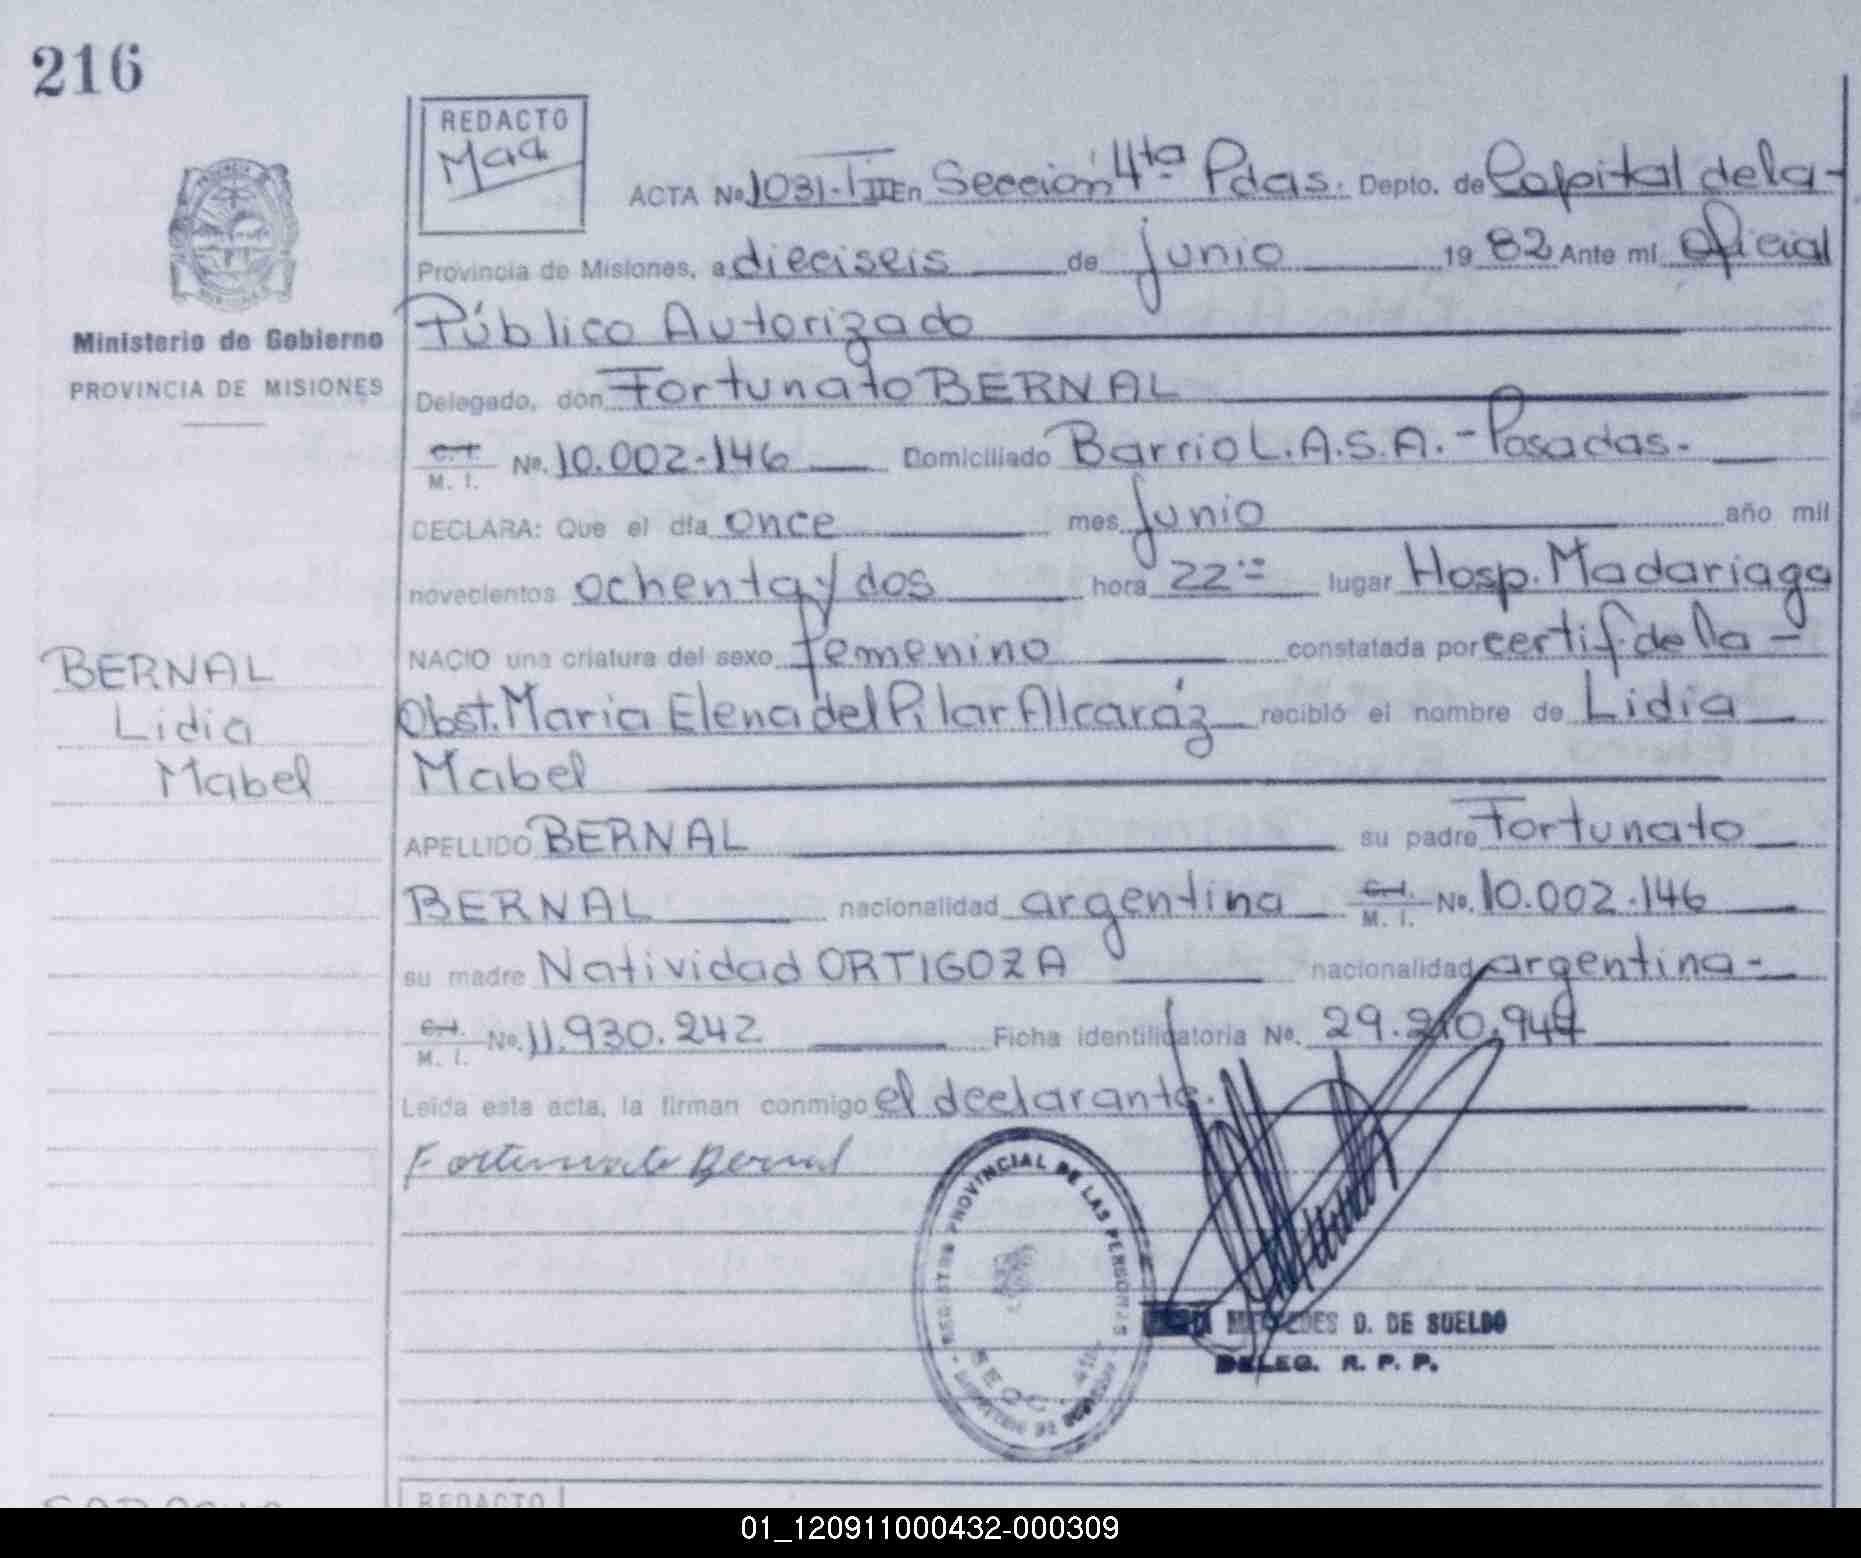 216
REDACTO
Maa
ACTA No. 1031-III En Sección 4ta Pdas. Depto. de Capital de la-
Provincia de Misiones, a dieciseis de junio 19 82 Ante mi Oficial
Público Autorizado
Ministerio de Gobierno
PROVINCIA DE MISIONES
Delegado, don Fortunato BERNAL
C.I. M. I. No. 10.002.146 Domiciliado Barrio L.A.S.A.-Posadas.-
DECLARA: Que el día once mes junio año mil
novecientos ochenta y dos hora 22:00 lugar Hosp. Madariaga
NACIO una criatura del sexo femenino constatada por certif. de la -
BERNAL
Lidia
Mabel
Obst. Maria Elena del Pilar Alcaráz recibió el nombre de Lidia
Mabel
APELLIDO BERNAL su padre Fortunato
BERNAL nacionalidad argentina C.I. M. I. No. 10.002.146
su madre Natividad ORTIGOZA nacionalidad argentina-
C.I. M. I. No. 11.930.242 Ficha identificatoria No. 29.210.949
Leída esta acta, la firman conmigo el declarante.
Fortunato Bernal
REGISTRO PROVINCIAL DE LAS PERSONAS
MERCEDES D. DE SUELDO
DELEG. R. P. P.
REDACTO
01_120911000432-000309